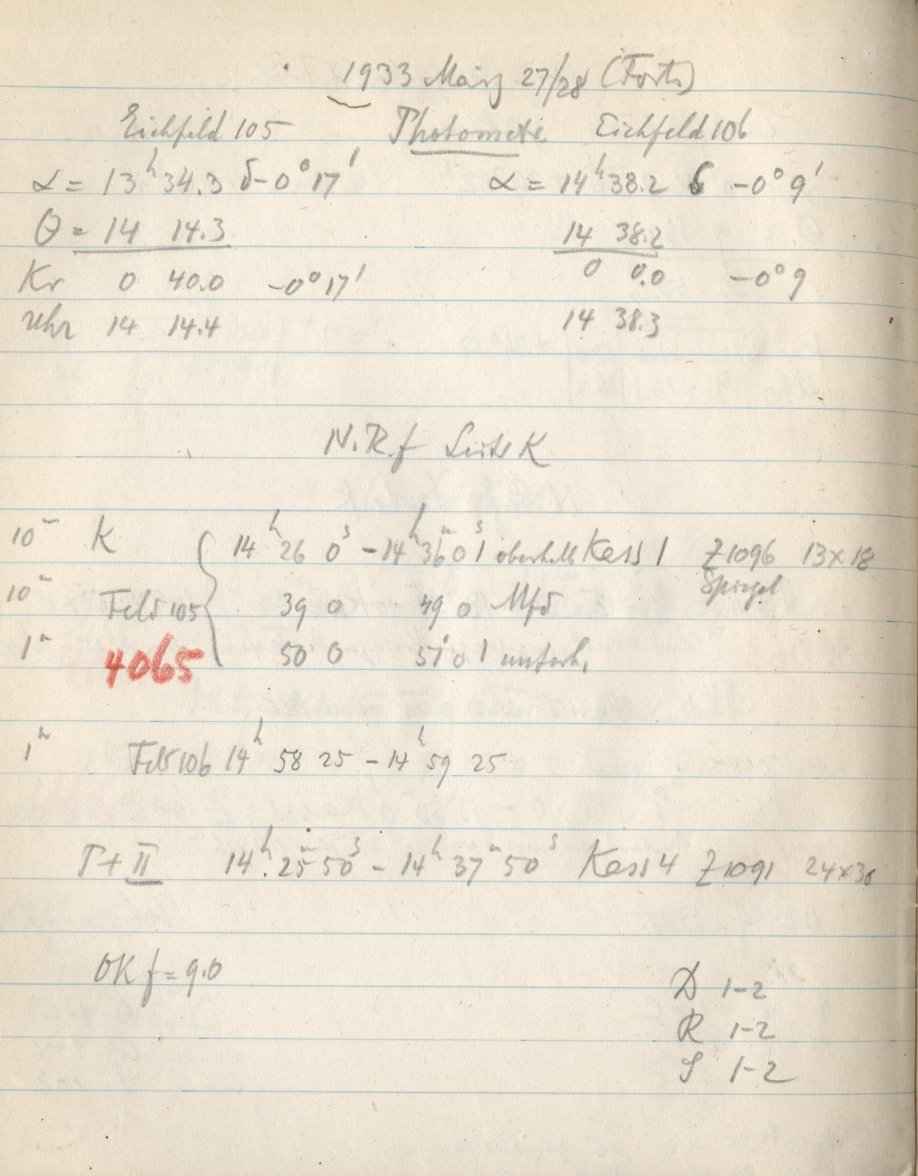 1933 März 27/28 (Forts)
Eichfeld 105 Photometer Eichfeld 106
α = 13h 34.3 δ -0° 17' α = 14h 38.2 δ -0° 9'
θ = 14 14.3 14 38.2
Kr 0 40.0 -0° 17' 0 0.0 -0° 9
Uhr 14 14.4 14 38.3
N.R.f Seite K
10m K 14h 26 0s - 14h 36m 0s oberhalb Kass 1 Z1096 13x18
Spiegel
10m Feld 105 39 0 49 0
1m 4065 50 0 51 0 unterh.
1m Feld 106 14h 58 25 - 14h 59 25
T + II 14h 25m 50s - 14h 37m 50s Kass 4 Z1091 24x30
OK f = 9.0
D 1-2
R 1-2
S 1-2